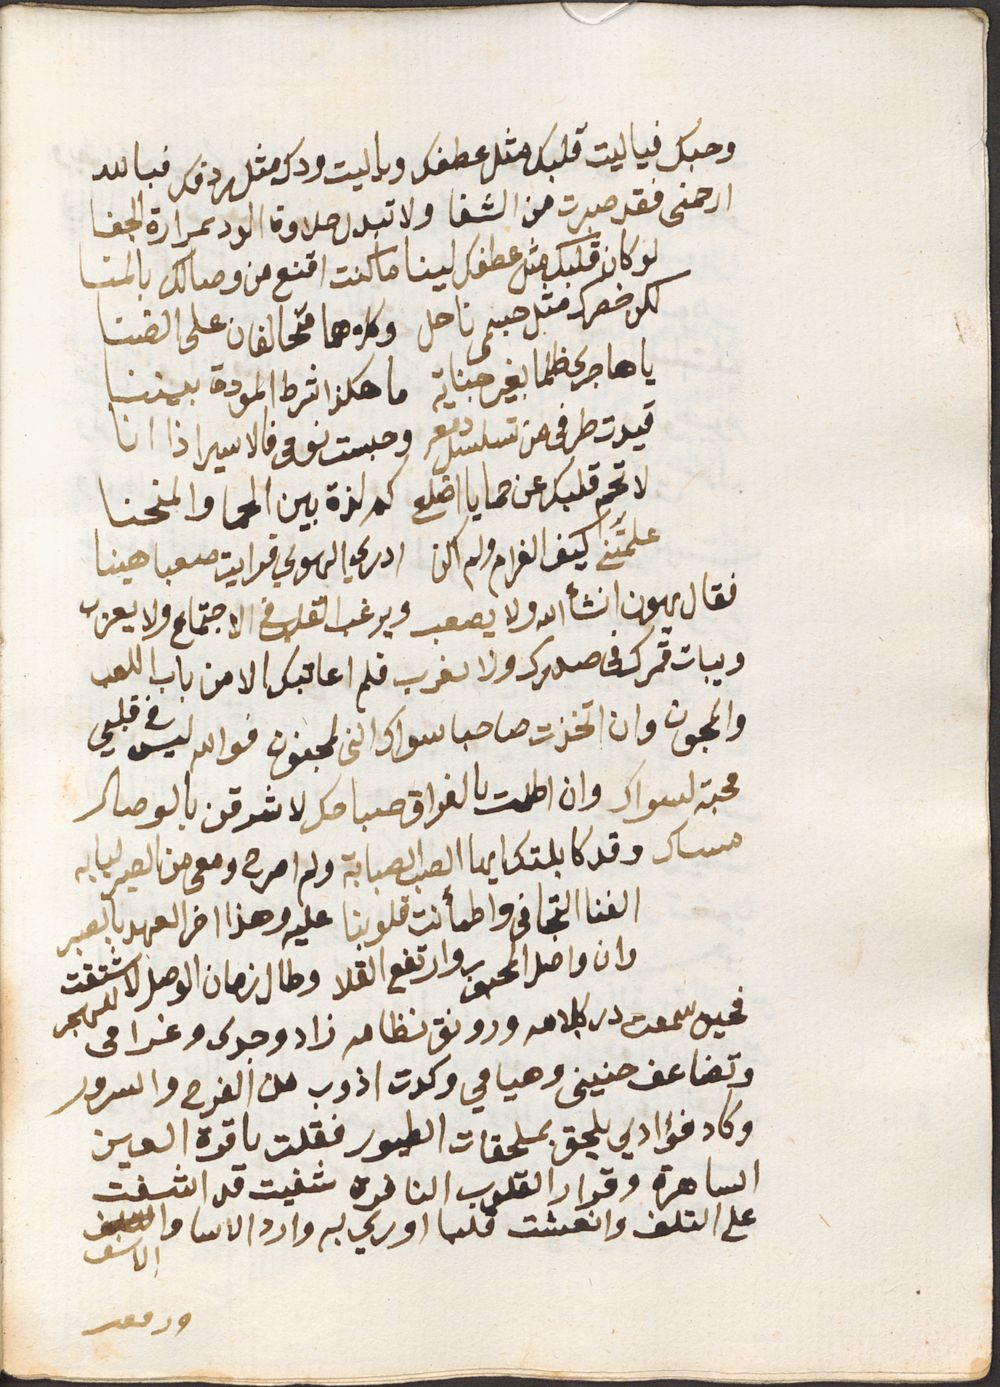 وحبك فياليت قلبك مثل عطفك وياليت ودك مثل ردفك فبالله
ارحمني فقد صرت من الشفا ولا تبدل حلاوة الود بمرارة الجفا
لو كان قلبك مثل عطفك لينا ما كنت اقنع من وصالك بالمنا
لكن خصرك مثل جسمي ناحل وكلاهما متحالفان على الضنا
يا هاجري ظلما بغير جناية ما هكذا شرط المودة بيننا
قيدت طرفي من تسلسل دمعه وحبست نومي فالاسير اذا انا
لا تحم قلبك عن حمايا اضلعي كم لذة بين الحما والمنحنا
علمتني كيف الغرام ولم اكن ادري الهوي فرايت صعبا هينا
فقال يهون انشأ الله ولا يصعب ويرغب القلب في الاجتماع ولا يعزب
ويبات قمرك في صدرك ولا يغرب فلم اعاتبك الا من باب اللعب
والمجون وان اتخذت صاحبا سواك انى لمجنون فوالله ليس في قلبي
محبة لسواك وان اظلمت بالفراق صباحك لاشرقن بالوصال
مساك وقد كابلتك ايها الصب الصبابة ولم امرح ومعي من الصبر لبابه
الفنا التجافي واطمأنت قلوبنا عليه وهذا اخر العهد بالصبر
وان واصل المحبوب وارتفع القلا وطال زمان الوصل لاشتقت للهجر
فحين سمعت در كلامه ورونق نظامه زاد وجدي وغرامي
وتضاعف حنيني وهيامي وكدت اذوب من الفرح والسرور
وكاد فؤادي يلحق بملحقات الطيور فقلت يا قرة العين
الساهرة وقرار القلوب النافرة شفيت قد اشفت
على التلف وانعشت قلبا اوري به وارد الاسا والاسف
ودمعه